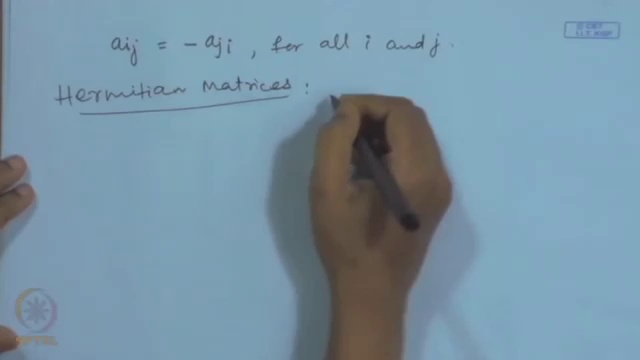 aij = - aji , for all i and j.
Hermitian Matrices :
NPTEL